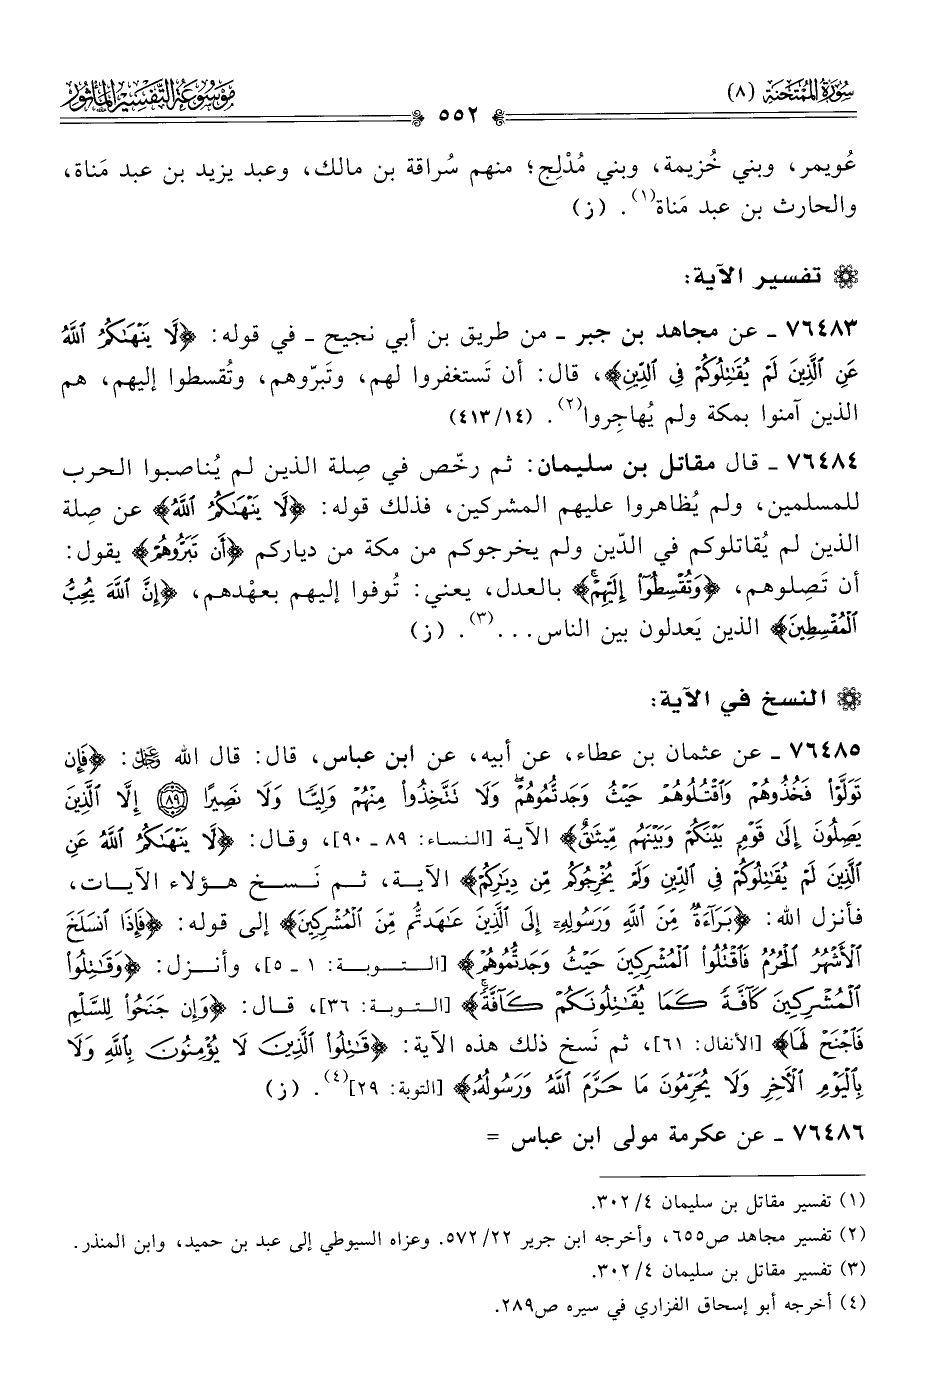 سُورَةُ المُمْتَحَنَةِ (٨)
٥٥٢
مَوْسُوعَةُ التَّفْسِيرِ المَأْثُور
عُويمر، وبني خُزيمة، وبني مُدْلِج؛ منهم سُراقة بن مالك، وعبد يزيد بن عبد مَناة،
والحارث بن عبد مَناة(١). (ز)
تفسير الآية:
٧٦٤٨٣ ـ عن مجاهد بن جبر ـ من طريق بن أبي نجيح ـ في قوله: ﴿لَّا يَنْهَىٰكُمُ ٱللَّهُ
عَنِ ٱلَّذِينَ لَمْ يُقَٰتِلُوكُمْ فِى ٱلدِّينِ﴾، قال: أن تَستغفروا لهم، وتَبرّوهم، وتُقسطوا إليهم، هم
الذين آمنوا بمكة ولم يُهاجِروا(٢). (٤١٣/١٤)
٧٦٤٨٤ ـ قال مقاتل بن سليمان: ثم رخّص في صِلة الذين لم يُناصبوا الحرب
للمسلمين، ولم يُظاهروا عليهم المشركين، فذلك قوله: ﴿لَّا يَنْهَىٰكُمُ ٱللَّهُ﴾ عن صِلة
الذين لم يُقاتلوكم في الدّين ولم يخرجوكم من مكة من دياركم ﴿أَن تَبَرُّوهُمْ﴾ يقول:
أن تَصِلوهم، ﴿وَتُقْسِطُوٓا۟ إِلَيْهِمْ ۚ﴾ بالعدل، يعني: تُوفوا إليهم بعهْدهم، ﴿إِنَّ ٱللَّهَ يُحِبُّ
ٱلْمُقْسِطِينَ﴾ الذين يَعدلون بين الناس...(٣). (ز)
النسخ في الآية:
٧٦٤٨٥ ـ عن عثمان بن عطاء، عن أبيه، عن ابن عباس، قال: قال الله ﷿: ﴿فَإِن
تَوَلَّوْا۟ فَخُذُوهُمْ وَٱقْتُلُوهُمْ حَيْثُ وَجَدتُّمُوهُمْ ۖ وَلَا تَتَّخِذُوا۟ مِنْهُمْ وَلِيًّا وَلَا نَصِيرًا ۝٨٩ إِلَّا ٱلَّذِينَ
يَصِلُونَ إِلَىٰ قَوْمٍۭ بَيْنَكُمْ وَبَيْنَهُم مِّيثَٰقٌ﴾ الآية [النساء: ٨٩ ـ ٩٠]، وقال: ﴿لَّا يَنْهَىٰكُمُ ٱللَّهُ عَنِ
ٱلَّذِينَ لَمْ يُقَٰتِلُوكُمْ فِى ٱلدِّينِ وَلَمْ يُخْرِجُوكُم مِّن دِيَٰرِكُمْ﴾ الآية، ثم نَسخ هؤلاء الآيات،
فأنزل الله: ﴿بَرَآءَةٌ مِّنَ ٱللَّهِ وَرَسُولِهِۦٓ إِلَى ٱلَّذِينَ عَٰهَدتُّم مِّنَ ٱلْمُشْرِكِينَ﴾ إلى قوله: ﴿فَإِذَا ٱنسَلَخَ
ٱلْأَشْهُرُ ٱلْحُرُمُ فَٱقْتُلُوا۟ ٱلْمُشْرِكِينَ حَيْثُ وَجَدتُّمُوهُمْ﴾ [التوبة: ١ ـ ٥]، وأنزل: ﴿وَقَٰتِلُوا۟
ٱلْمُشْرِكِينَ كَآفَّةً كَمَا يُقَٰتِلُونَكُمْ كَآفَّةً ۚ﴾ [التوبة: ٣٦]، قال: ﴿وَإِن جَنَحُوا۟ لِلسَّلْمِ
فَٱجْنَحْ لَهَا﴾ [الأنفال: ٦١]، ثم نَسخ ذلك هذه الآية: ﴿قَٰتِلُوا۟ ٱلَّذِينَ لَا يُؤْمِنُونَ بِٱللَّهِ وَلَا
بِٱلْيَوْمِ ٱلْـَٔاخِرِ وَلَا يُحَرِّمُونَ مَا حَرَّمَ ٱللَّهُ وَرَسُولُهُۥ﴾ [التوبة: ٢٩](٤). (ز)
٧٦٤٨٦ ـ عن عكرمة مولى ابن عباس =
(١) تفسير مقاتل بن سليمان ٣٠٢/٤.
(٢) تفسير مجاهد ص٦٥٥، وأخرجه ابن جرير ٥٧٢/٢٢. وعزاه السيوطي إلى عبد بن حميد، وابن المنذر.
(٣) تفسير مقاتل بن سليمان ٣٠٢/٤.
(٤) أخرجه أبو إسحاق الفزاري في سيره ص٢٨٩.